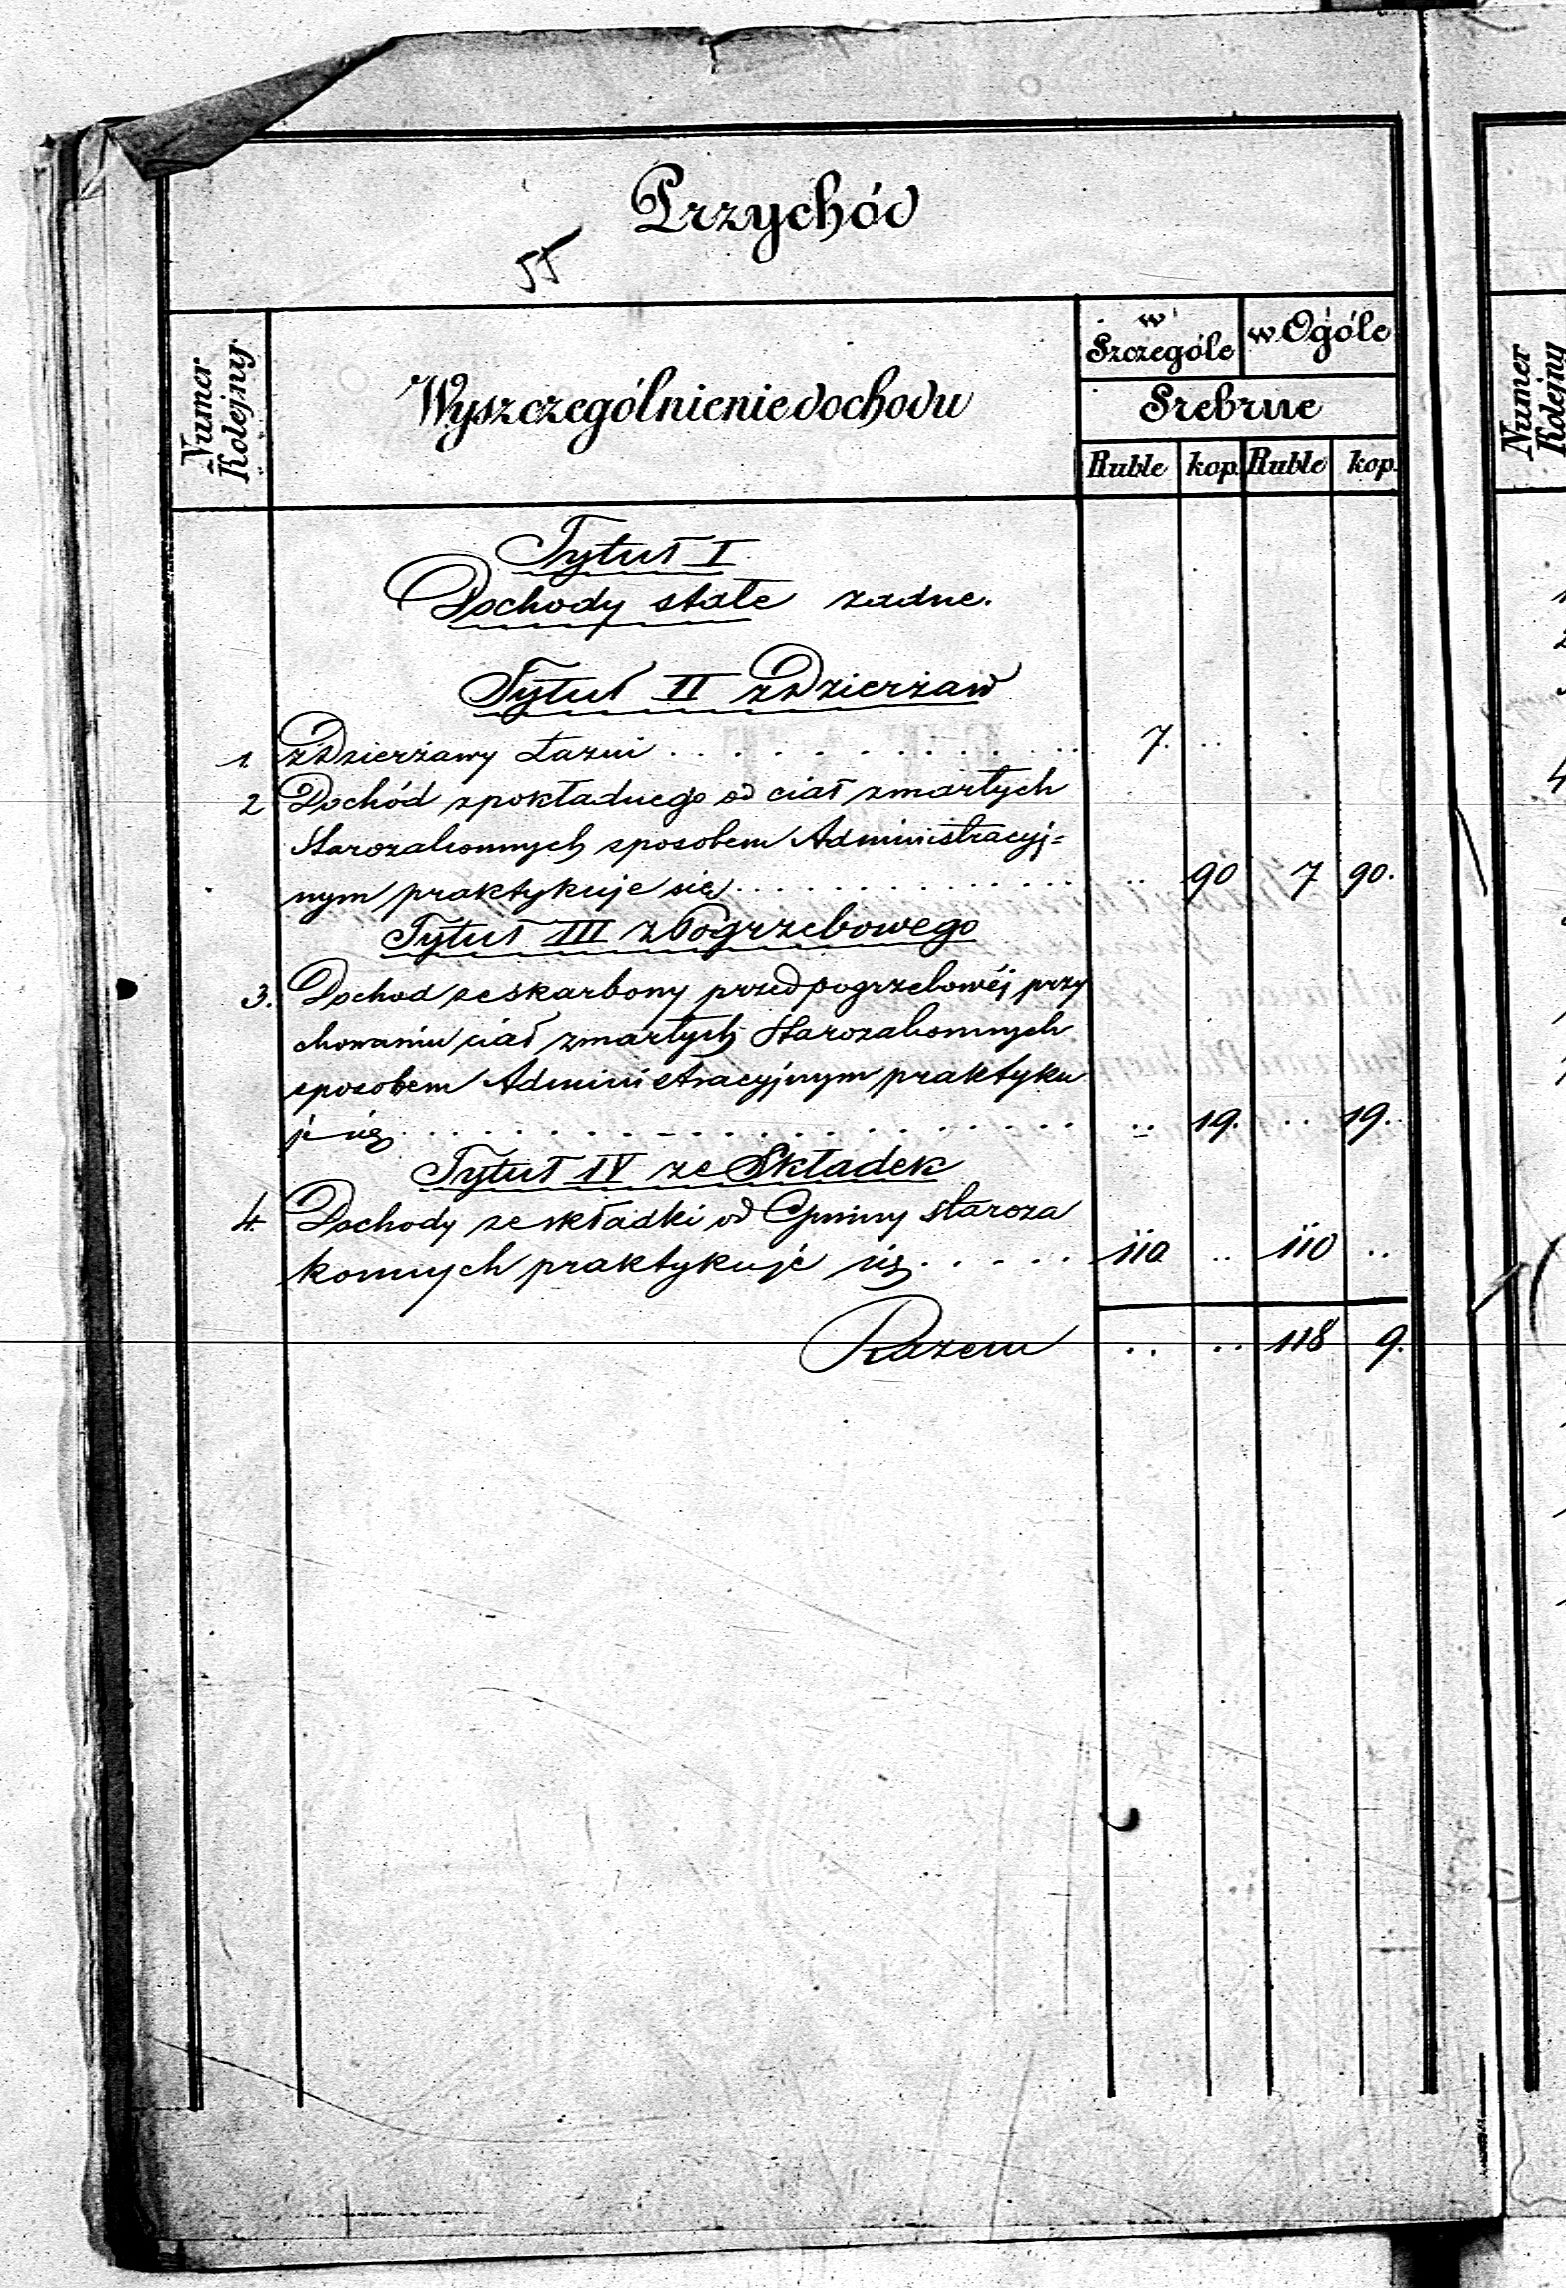 Przychód
55
Numer Kolejny
Wyszczególnienie dochodu
w Szczególe
w Ogóle
Srebrne
Ruble kop. Ruble kop.
Tytuł I
Dochody stałe żadne.
Tytuł II z Dzierżaw
1. z Dzierżawy Łazni . . . . . . . . . . 7. ..
2 Dochód z pokładnego od ciał zmarłych
Starozakonnych sposobem Administracyj=
nym praktykuje się . . . . . . . . . . .. 90 7 90.
Tytuł III z Pogrzebowego
3. Dochod ze skarbony przed pogrzebowéj przy
chowaniu ciał zmarłych Starozakonnych
sposobem Administracyjnym praktyku
je się . . . . . . . . . . .. 19. .. 19.
Tytuł IV ze Składek
4 Dochody ze składki od Gminy staroza
konnych praktykuje się . . . . . 110 .. 110 ..
Razem .. .. 118 9.
Numer Kolejny